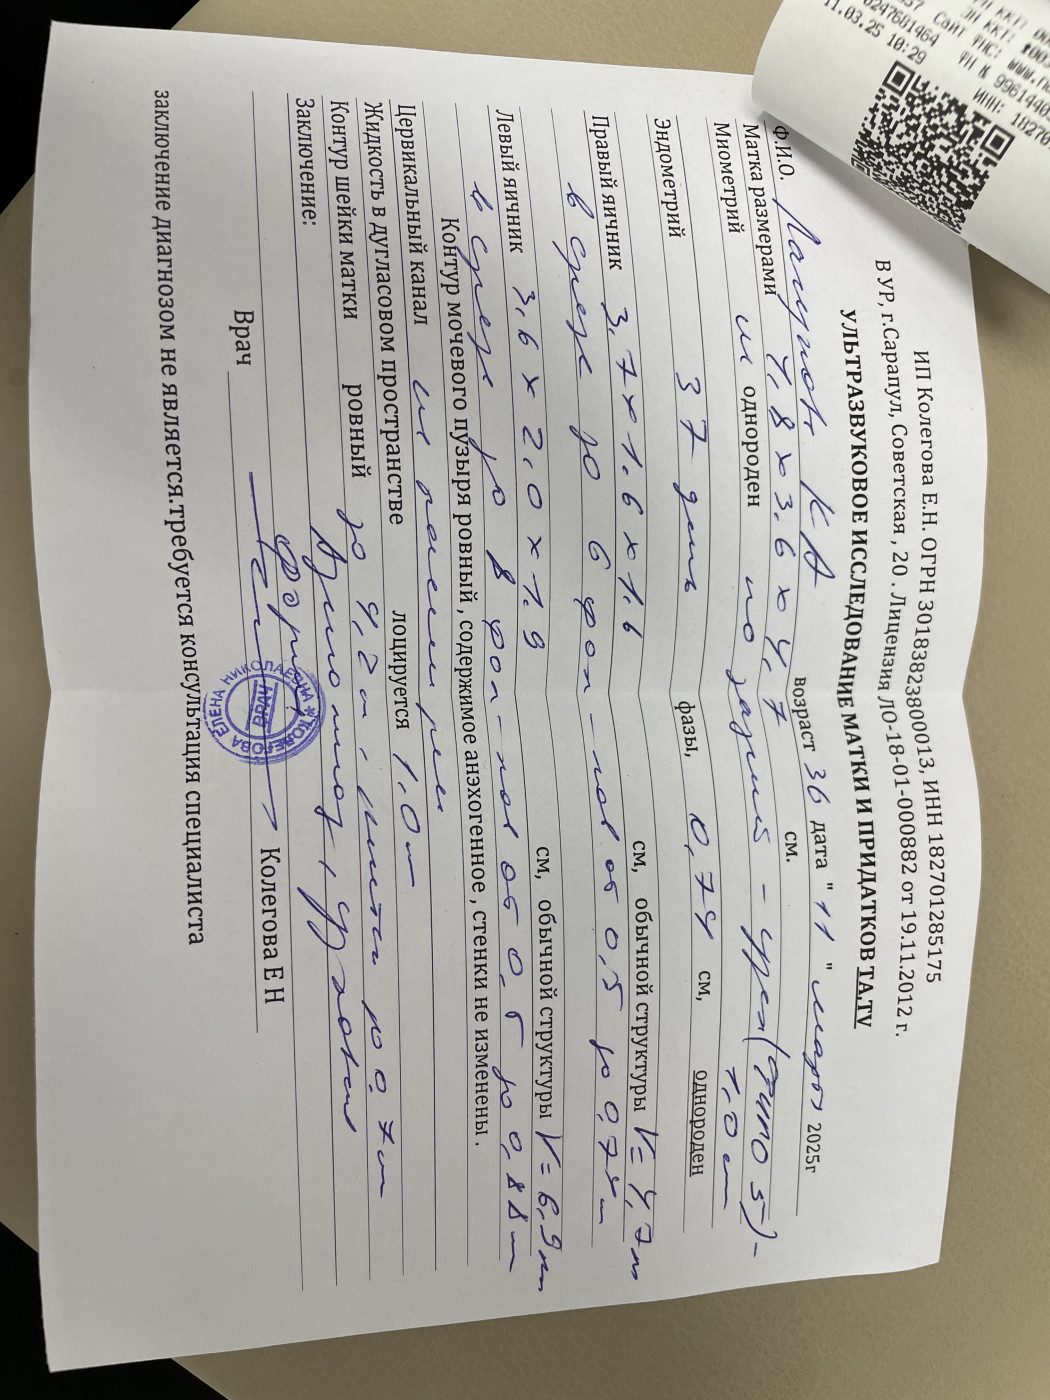 ИП Колегова Е.Н. ОГРН 301838238000013, ИНН 182701285175
В УР, г.Сарапул, Советская , 20 . Лицензия ЛО-18-01-000882 от 19.11.2012 г.
УЛЬТРАЗВУКОВОЕ ИССЛЕДОВАНИЕ МАТКИ И ПРИДАТКОВ ТА.ТV
Ф.И.О. К А возраст 36 дата " 11 " марта 2025г
Матка размерами 4,8 х 3,6 х 4,7 см.
Миометрий не однороден по задней - узел (фиго 5) -
1,0 см
Эндометрий 37 день фазы, 0,74 см, однороден
Правый яичник 3,7 х 1,6 х 1,6 см, обычной структуры V= 4,7 мл
в срезе до 6 фол-лов от 0,5 до 0,74 см
Левый яичник 3,6 х 2,0 х 1,9 см, обычной структуры V= 6,9 мл
в срезе до 8 фол-лов от 0,5 до 0,88 см
Контур мочевого пузыря ровный , содержимое анэхогенное , стенки не изменены .
Цервикальный канал не расширен
Жидкость в дугласовом пространстве лоцируется 1,0 см
Контур шейки матки ровный до 4,2 см, кисты до 0,7 см
Заключение: Аденомиоз, узловая
форма
Врач Колегова Е Н
КОЛЕГОВА ЕЛЕНА НИКОЛАЕВНА
ВРАЧ
заключение диагнозом не является.требуется консультация специалиста
11.03.25 10:29
Сайт ФНС: